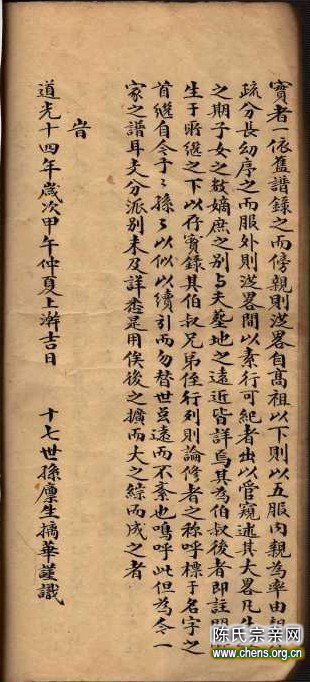 實者一依舊譜錄之而傍親則從畧自高祖以下則以五服內親為率由親
疏分長幼序之而服外則從畧間以素行可紀者出以管窺述其大畧凡生
之期子女之數嫡庶之别與夫塟地之遠近皆詳焉其為伯叔後者即註
生于所継之下以存實錄其伯叔兄弟侄行列則論修者之称呼標于名字之
首継自今子子孫孫以似以續引而勿替世益遠而不紊也嗚呼此但為今一
家之譜耳夫分派别未及詳悉是用俟後之擴而大之綜而成之者
旹
道光十四年歲次甲午仲夏上澣吉日 十七世孫廩生摛華謹識
陈氏宗亲网
www.chens.org.cn